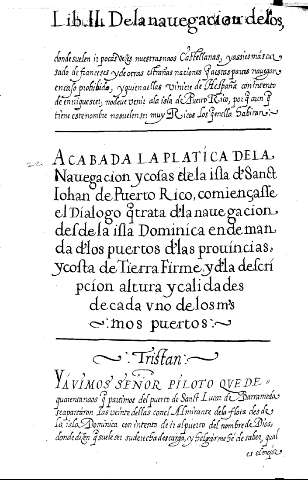 Lib. II. De la nauegacion de los,
donde suelen ir pocas vezes nuestras naos Castellanas, y assi es más cur
sado de franceses y de otras estrañas naciones que estas partes nauegan
en caso prohibido, y que naue las viniere de Hespaña con intento
de enriquescer, no deue venir a la isla de Puerto Rico, por que aun q̃
tiene este nombre no suelen ser muy Ricos los que en ella habitan.
ACABADA LA PLATICA DE LA
Nauegacion y cosas de la isla d' Sanct
Iohan de Puerto Rico, comiençasse
el Dialogo q̃ trata d' la nauegacion
desde la isla Dominica en deman
da d' los puertos d' las prouincias,
y costa de Tierra Firme, y d' la descri
pcion altura y calidades
de cada vno de los mis
mos puertos:
Tristan
YA VIMOS SEÑOR PILOTO QUE DE
quarenta naos q̃ partimos del puerto de Sanct Lucar de Barrameda
se apartaron las veinte dellas con el Almirante de la flota desde
la isla Dominica con intento de ir al puerto del nombre de Dios,
donde dizen q̃ suele ser su derecha descarga, y holgarme he de saber, qual
es el mejor